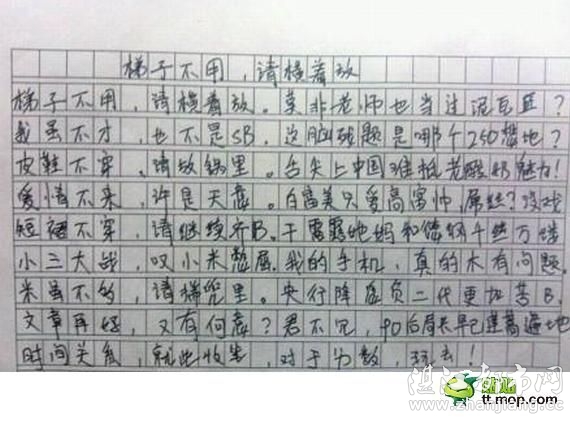 梯子不用，请横着放
梯子不用，请横着放。莫非老师也当过泥瓦匠？
我虽不才，也不是SB。这脑残题是哪个250想地？
皮鞋不穿，请放锅里。舌尖上中国难抵老酸奶魅力！
爱情不来，许是天意。白富美只爱高富帅，屌丝？没戏
短裙不穿，请继续齐B。干露露地妈和傻钢千丝万缕
小三大战，叹小米憋屈。我的手机，真的木有问题。
米虽不多，请揣兜里。央行降息负二代更加苦B。
文章再好，又有何意？君不见，90后局长早已遍地
时间关系，就此收笔，对于分数，玩去！
猫扑
tt.mop.com
湛江都市网
www.zhanjiang.cc